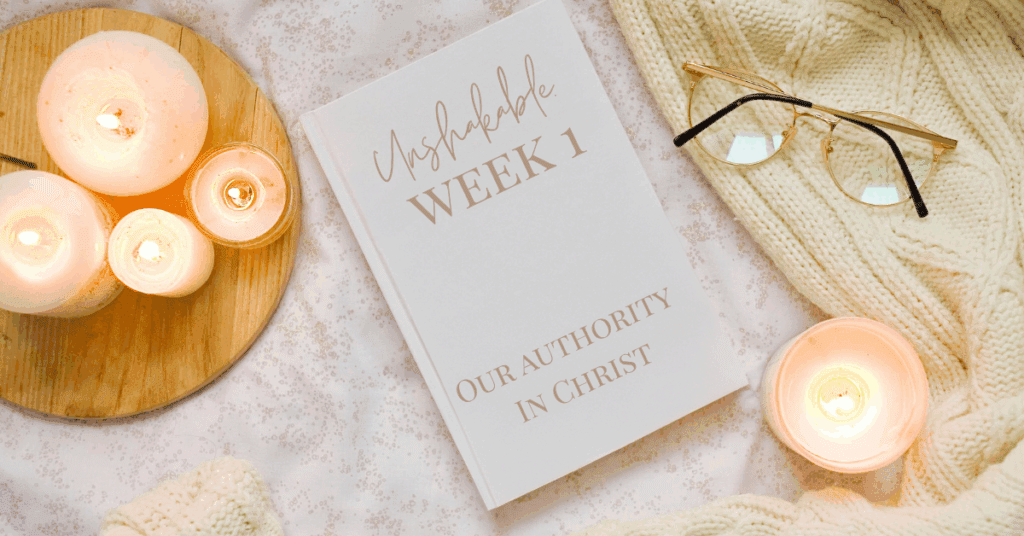 Unshakable
WEEK 1
OUR AUTHORITY
IN CHRIST